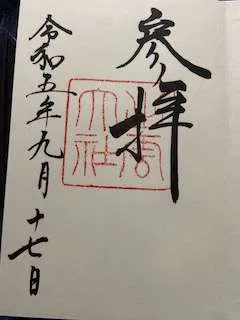 参拝
大社
令和五年九月十七日